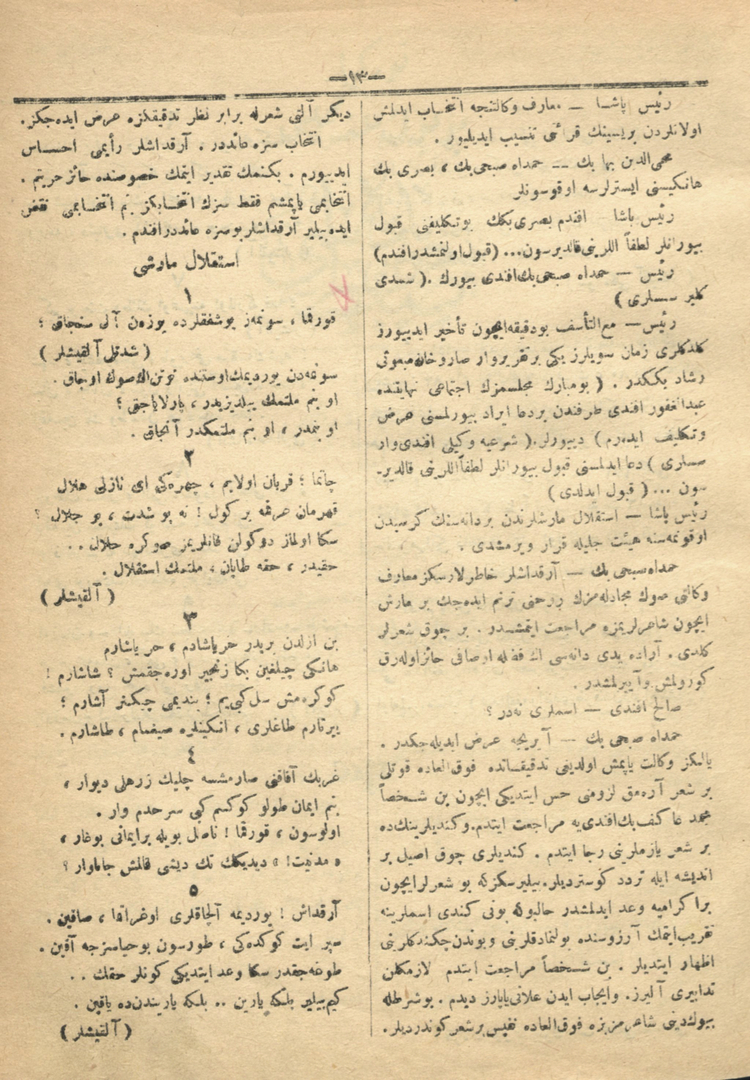 —٩٣—
رئیس پاشا — معارف وکالتنجه انتخاب ایدلمش
اولانلردن بریسینك قرائتی تنسیب ایدیلیور .
محی‌الدین بها بك — حمدالله صبحی بك ، بصری بك
هانکیسی ایسترلرسه اوقوسونلر
رئیس پاشا — افندم بصری بکك بو تکلیفنی قبول
بیورانلر لطفاً اللرینی قالدیرسون... (قبول اولنمشدر افندم)
رئیس — حمدالله صبحی بك افندی بیورك .( شدتلی
کلیر سسلری )
رئیس — مع‌التأسف بو دقیقه ایچون تأخیر ایدییورز
کلدکلری زمان سویلرز یکی بر تقریر وار صاروخان مبعوثی
رشاد بککدر . ( بو مبارك مجلسمزك اجتماعی نهایتنده
عبدالغفور افندی طرفندن بر دعا ایراد بیورلمسنی عرض
و تکلیف ایدەرم ) دیبورلر.( شرعیه وکیلی افندی وار
صدالری ) دعا ایدلمسنی قبول بیورانلر لطفاً اللرینی قالدیر-
سون ... ( قبول ایدلدی )
رئیس پاشا — استقلال مارشلرندن بر دانه‌سنك کرسیدن
اوقونمه‌سنه هیئت جلیله قرار ویرمشدی .
حمدالله صبحی بك — آرقداشلر خاطرلارسکز معارف
وکالتی صوك مجادله‌مزك روحنی ترنم ایده‌جك بر مارش
ایچون شاعرلریمزه مراجعت ایتمشدر . بر چوق شعرلر
کلدی . آراده یدی دانه‌سی اك فضله اوصافی حائز اوله‌رق
کورولمش و آیریلمشدر .
صالح افندی — اسملری نه‌در ؟
حمدالله صبحی بك — آیریجه عرض ایدیله‌جکدر .
یالکز وکالت یاپمش اولدیغی تدقیقاتده فوق‌العاده قوتلی
بر شعر آرەمق لزومنی حس ایتدیکی ایچون بن شخصاً
محمد عاکف بك افندی‌یه مراجعت ایتدم. و کندیلرینك‌ده
بر شعر یازملرینی رجا ایتدم . کندیلری چوق اصیل بر
اندیشه ایله تردد کوستردیلر. بیلیرسکز که بو شعرلر ایچون
بر اکرامیه وعد ایدلمشدر حالبوکه بونی کندی اسملرینه
تقریب ایتمك آرزوسنده بولنمادقلرینی و بوندن چکندکلرینی
اظهار ایتدیلر . بن شخصاً مراجعت ایتدم لازمکلن
تدابیری آلیرز. و ایجاب ایدن علانی یاپارز دیدم . بو شرطله
بیوك دینی شاعرمز بزه فوق‌العاده نفیس بر شعر کوندردیلر.
دیکر آلتی شعرله برابر نظر تدقیقکزه عرض ایده‌جکز .
انتخاب سزه عائددر . آرقداشلر رأیمی احساس
ایدیبورم . بکنمك تقدیر ایتمك خصوصنده حائز حریتم .
انتخابمی یاپمشم فقط سزك انتخابکز بنم انتخابمی نقض
ایده‌بیلیر آرقداشلر بو سزه عائددر افندم .
استقلال مارشی
١
قورقما ، سونمه‌ز بو شفقلرده یوزەن آل سنجاق ؛
( شدتلی آلقیشلر )
سونمه‌دن یوردیمك اوستنده توتن اك صوك اوجاق .
او بنم ملتمك ییلدیزیدر ، پارلایاجق ؛
او بنمدر ، او بنم ملتمکدر آنجاق .
٢
چاتما ؛ قربان اولایم ، چهره‌کی ای نازلی هلال
قهرمان عرقمه بر کول ! نه بو شدت ، بو جلال ؟
سکا اولماز دوکولن قانلریمز صوکره حلال ..
حقیدر ، حقه طاپان ، ملتمك استقلال .
( آلقیشلر )
٣
بن ازلدن بریدر حر یاشادم ، حر یاشارم
هانکی چیلغین بکا زنجیر اوره‌جقمش ؟ شاشارم !
کوکره‌مش سل کبی‌یم ؛ بندیمی چیکنر آشارم ؛
ییرتارم طاغلری ، انکینلره صیغمام ، طاشارم .
٤
غربك آفاقنی صارمشسه چلیك زرهلی دیوار ،
بنم ایمان طولو کوکسم کبی سرحدم وار .
اولوسون ، قورقما ! ناصل بویله بر ایمانی بوغار ،
« مدنیت! » دیدیکك تك دیشی قالمش جاناوار ؟
٥
آرقداش ! یوردیمه آلچاقلری اوغراتما ، صاقین .
سپر ایت کوکده‌کی ، طورسون بو حیاسزجه آقین .
طوغه‌جقدر سکا وعد ایتدیکی کونلر حقك ..
کیم بیلیر بلکه یارین .. بلکه یاریندن ده یاقین .
( آلقیشلر )